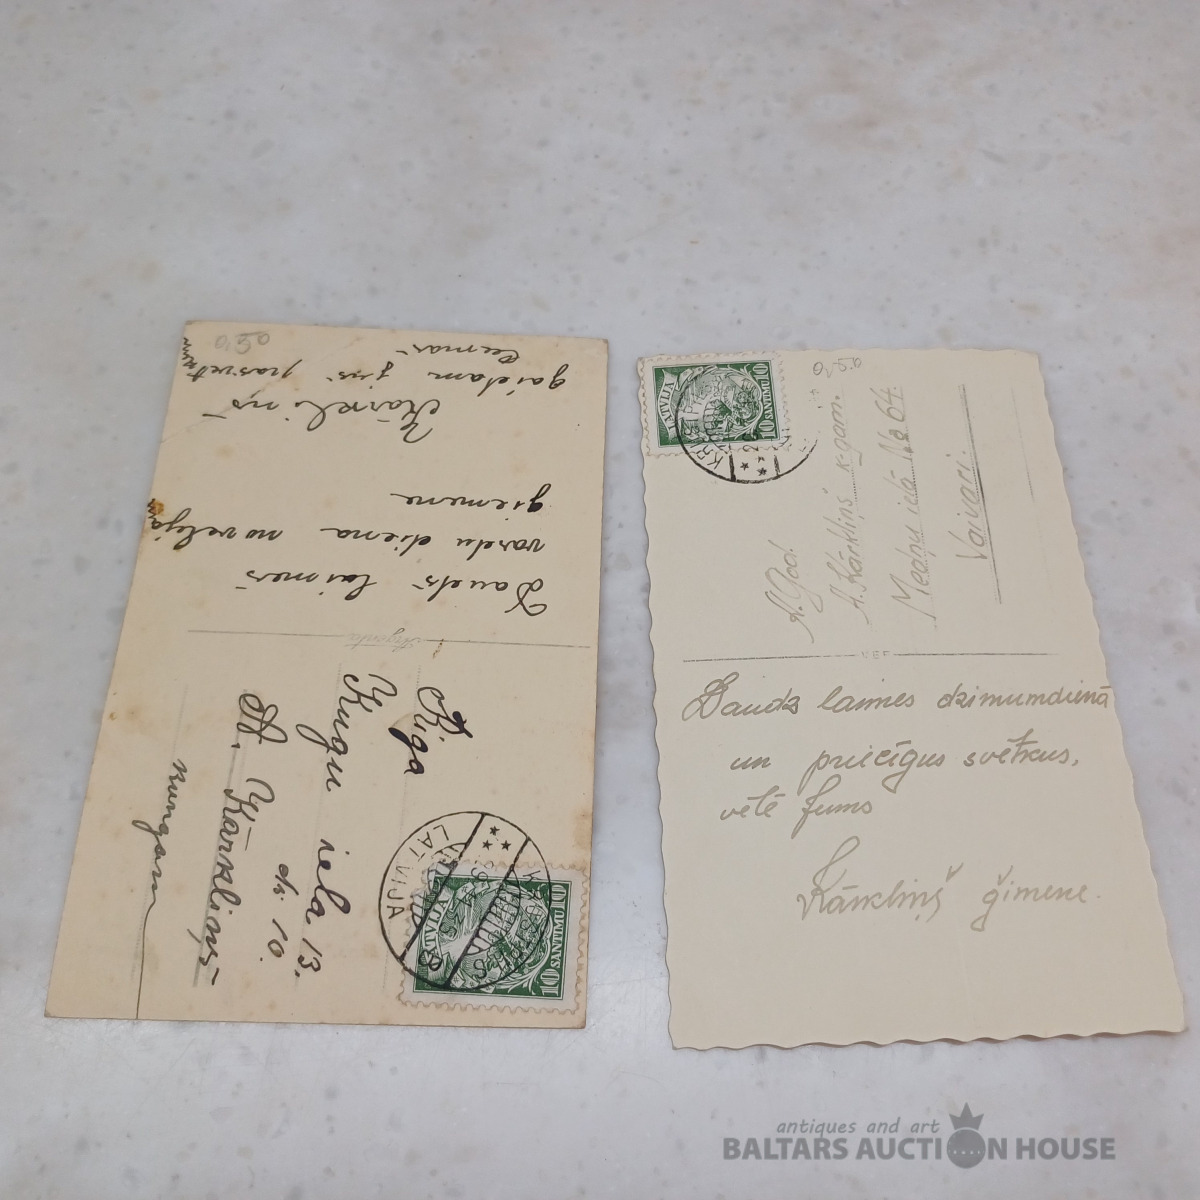 0,50
Daudz laimes
vardu diena no velejam
gimene
Kārkliņš
gaidam jūs
Argenta
Riga
Kugu iela 13.
dz. 10.
A. Kārkliņš
kungam
LATVIJA
LATVIJA
10 SANTIMU 10
0.50
LATVIJA
10 SANTIMU 10
A. God.
A. Kārkliņš k-gam.
Medņu ielā No 64.
Vaivari.
Daudz laimes dzimumdienā
un priecīgus svētkus,
vēlē Jums
Kārkliņš ģimene.
antiques and art
BALTARS AUCTION HOUSE